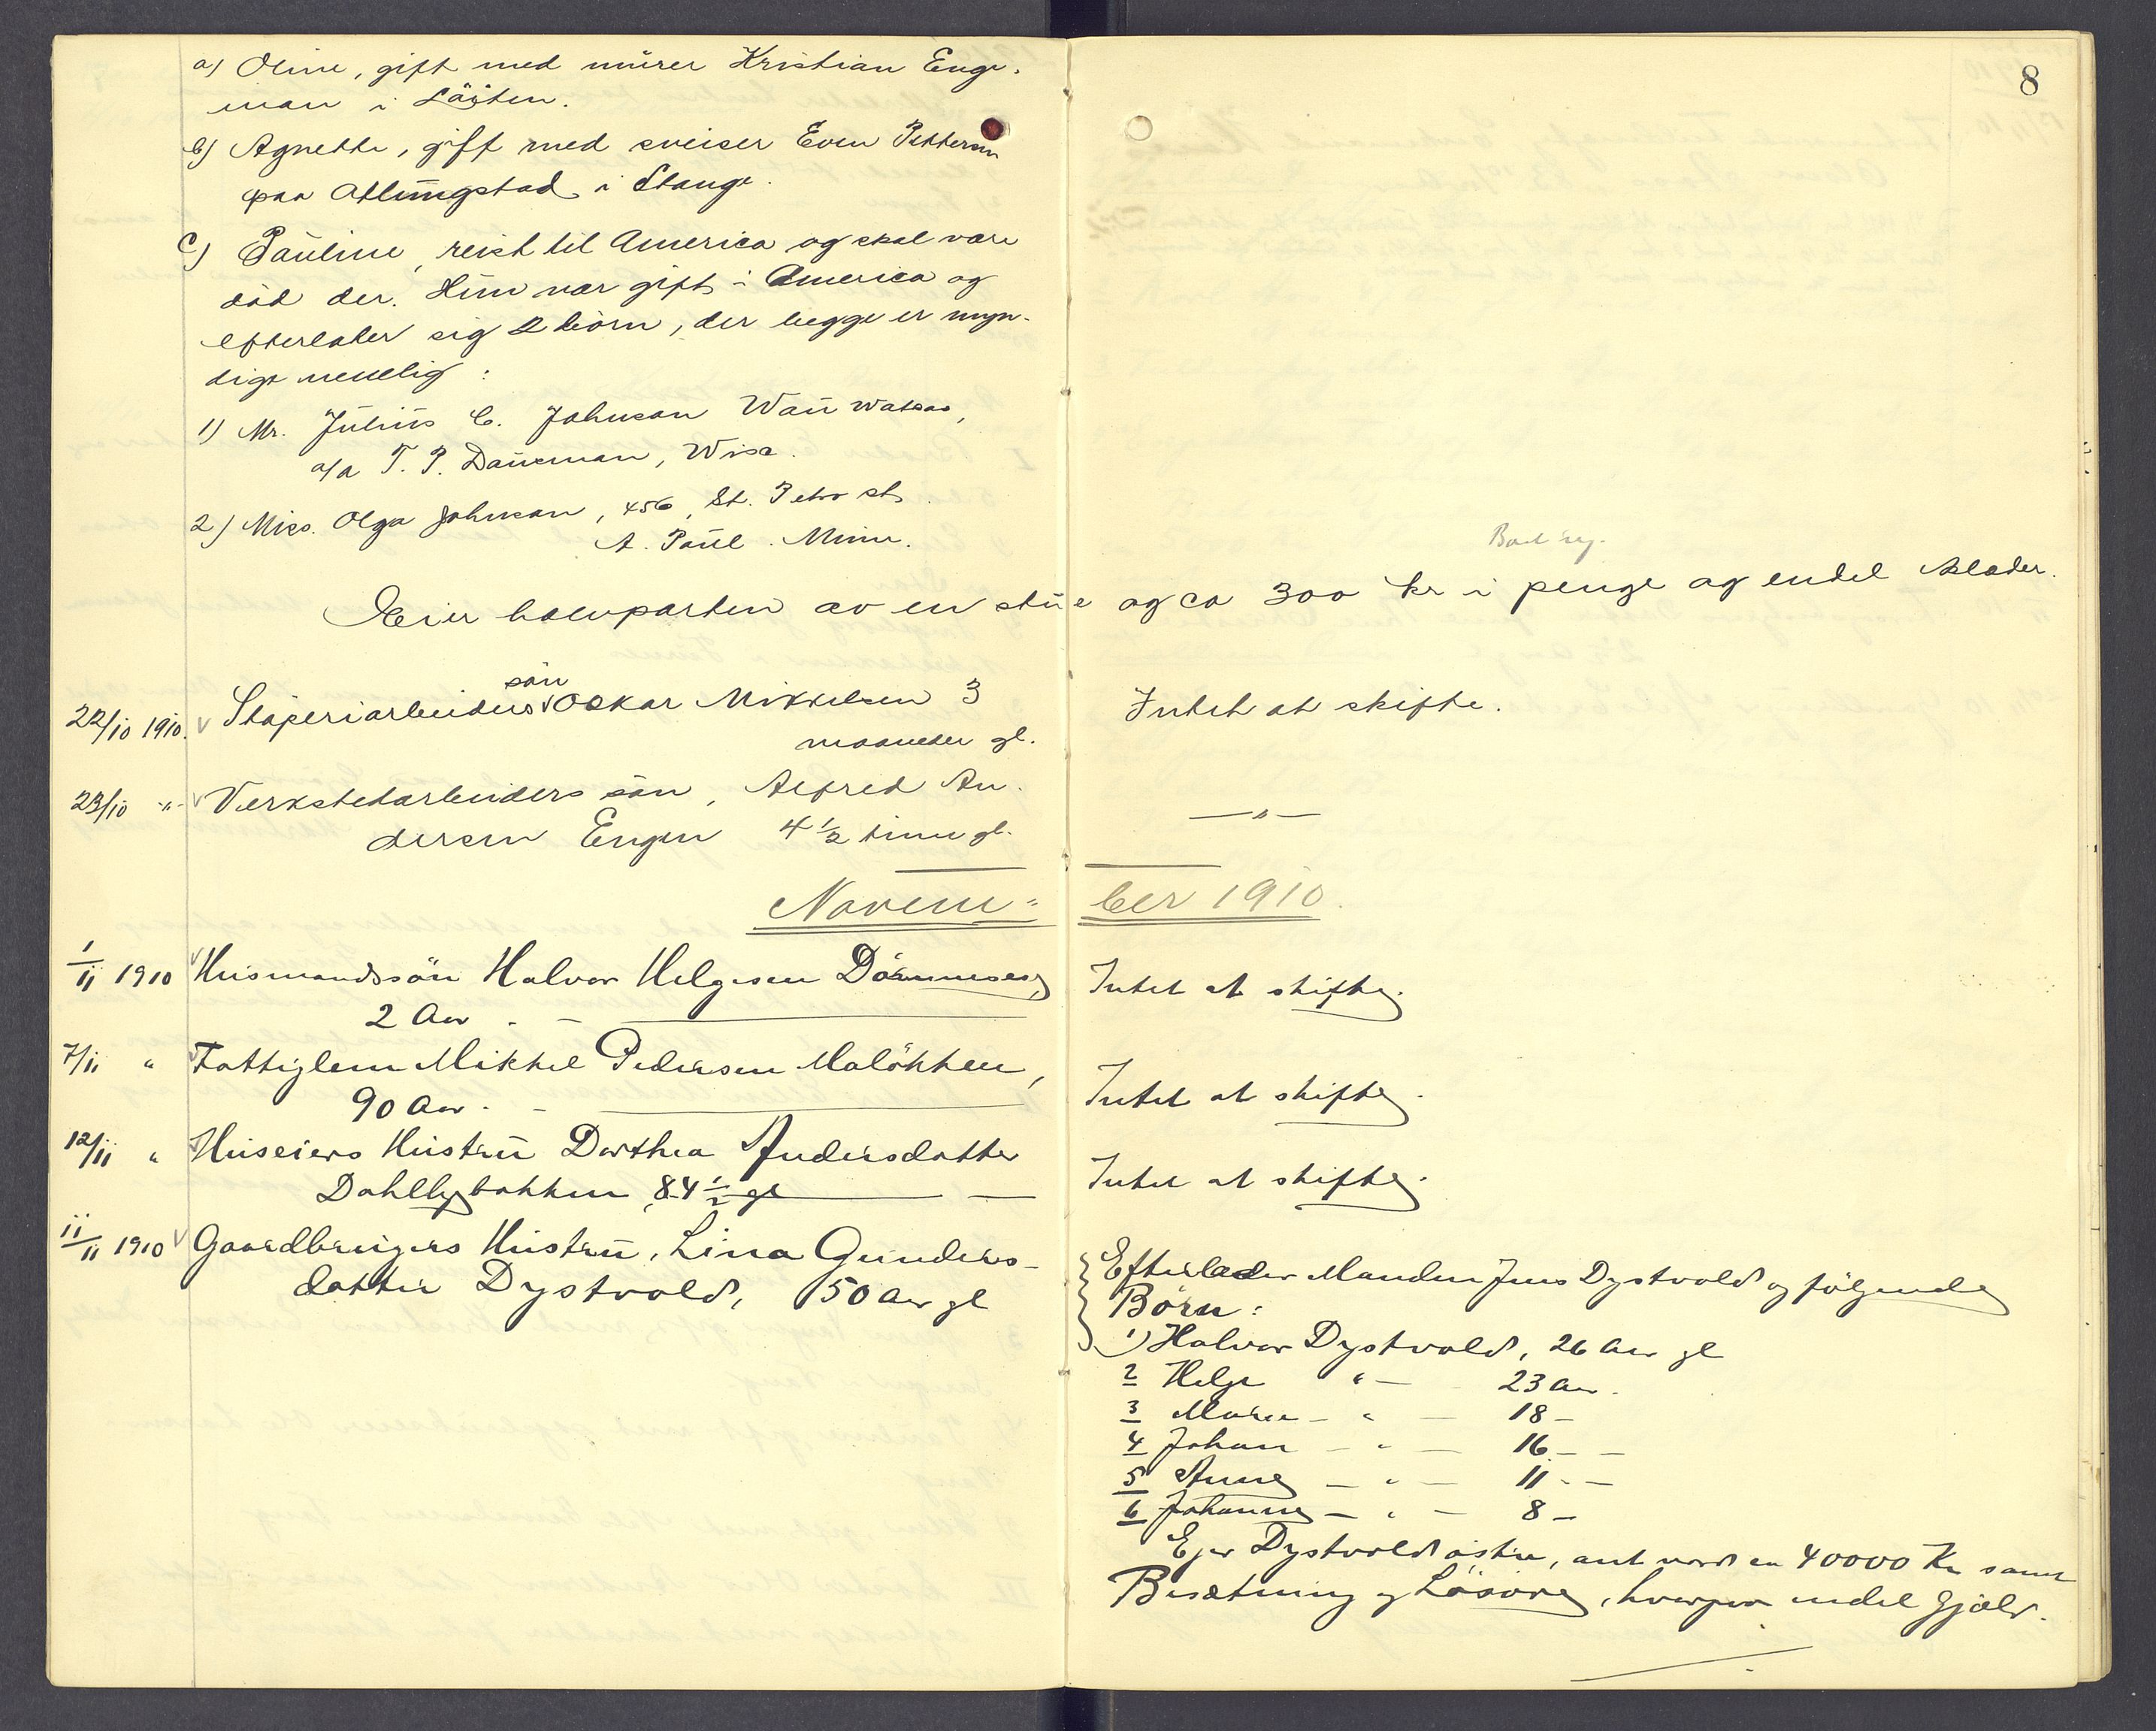 8
a) Oline, gift med murer Kristian Enge-
man i Löiten.
b) Agnethe, gift med sveiser Even Pettersen
paa Atlungstad i Stange.
c) Pauline, reist til America og skal være
död der. Hun var gift i America og
efterlater sig 2 börn, der begge er myn-
dige nemlig:
1) Mr. Julius C. Johnson Wau watosa,
a/a T. P. Dausman, Wisc.
2) Miss. Olga Johnson, 456, St. Peter st.
St. Paul. Minn.
Eier halvparten av en stue og ca 300 kr i penge og endel klæder.
sön
22/10 1910. Stöperiarbeiders Oskar Mikkelsen 3
maaneder gl.
Intet at skifte.
23/10 -"- Værkstedarbeiders sön, Alfred An-
dersen Engen 4 1/2 time gl.
—"—
Novem-ber 1910.
1/11 1910 Husmandssön Halvor Helgesen Dömmeseng
2 Aar. -
Intet at skifte.
7/11 " Fattiglem Mikkel Pedersen Malökken,
90 Aar. -
Intet at skifte.
12/11 " Huseiers Hustru Dorthea Andersdatter
Dahllybakken, 84 1/2 gl
Intet at skifte.
11/11 1910 Gaardbrugers Hustru, Lina Gunders-
datter Dystvold, 50 Aar gl
Efterlader Manden Jens Dystvold og følgende
Börn:
1) Halvor Dystvold, 26 Aar gl
2 Helge " — 23 Aar.
3 Maren — " — 18 —
4 Johan — " — 16 — —
5 Anne — " — 11 - —
6 Johanne — " — 8 —
Ejer Dystvold östre, ant værd ca 40000 Kr samt
Besætning og Lösöre, hvorpaa endel Gjæld.